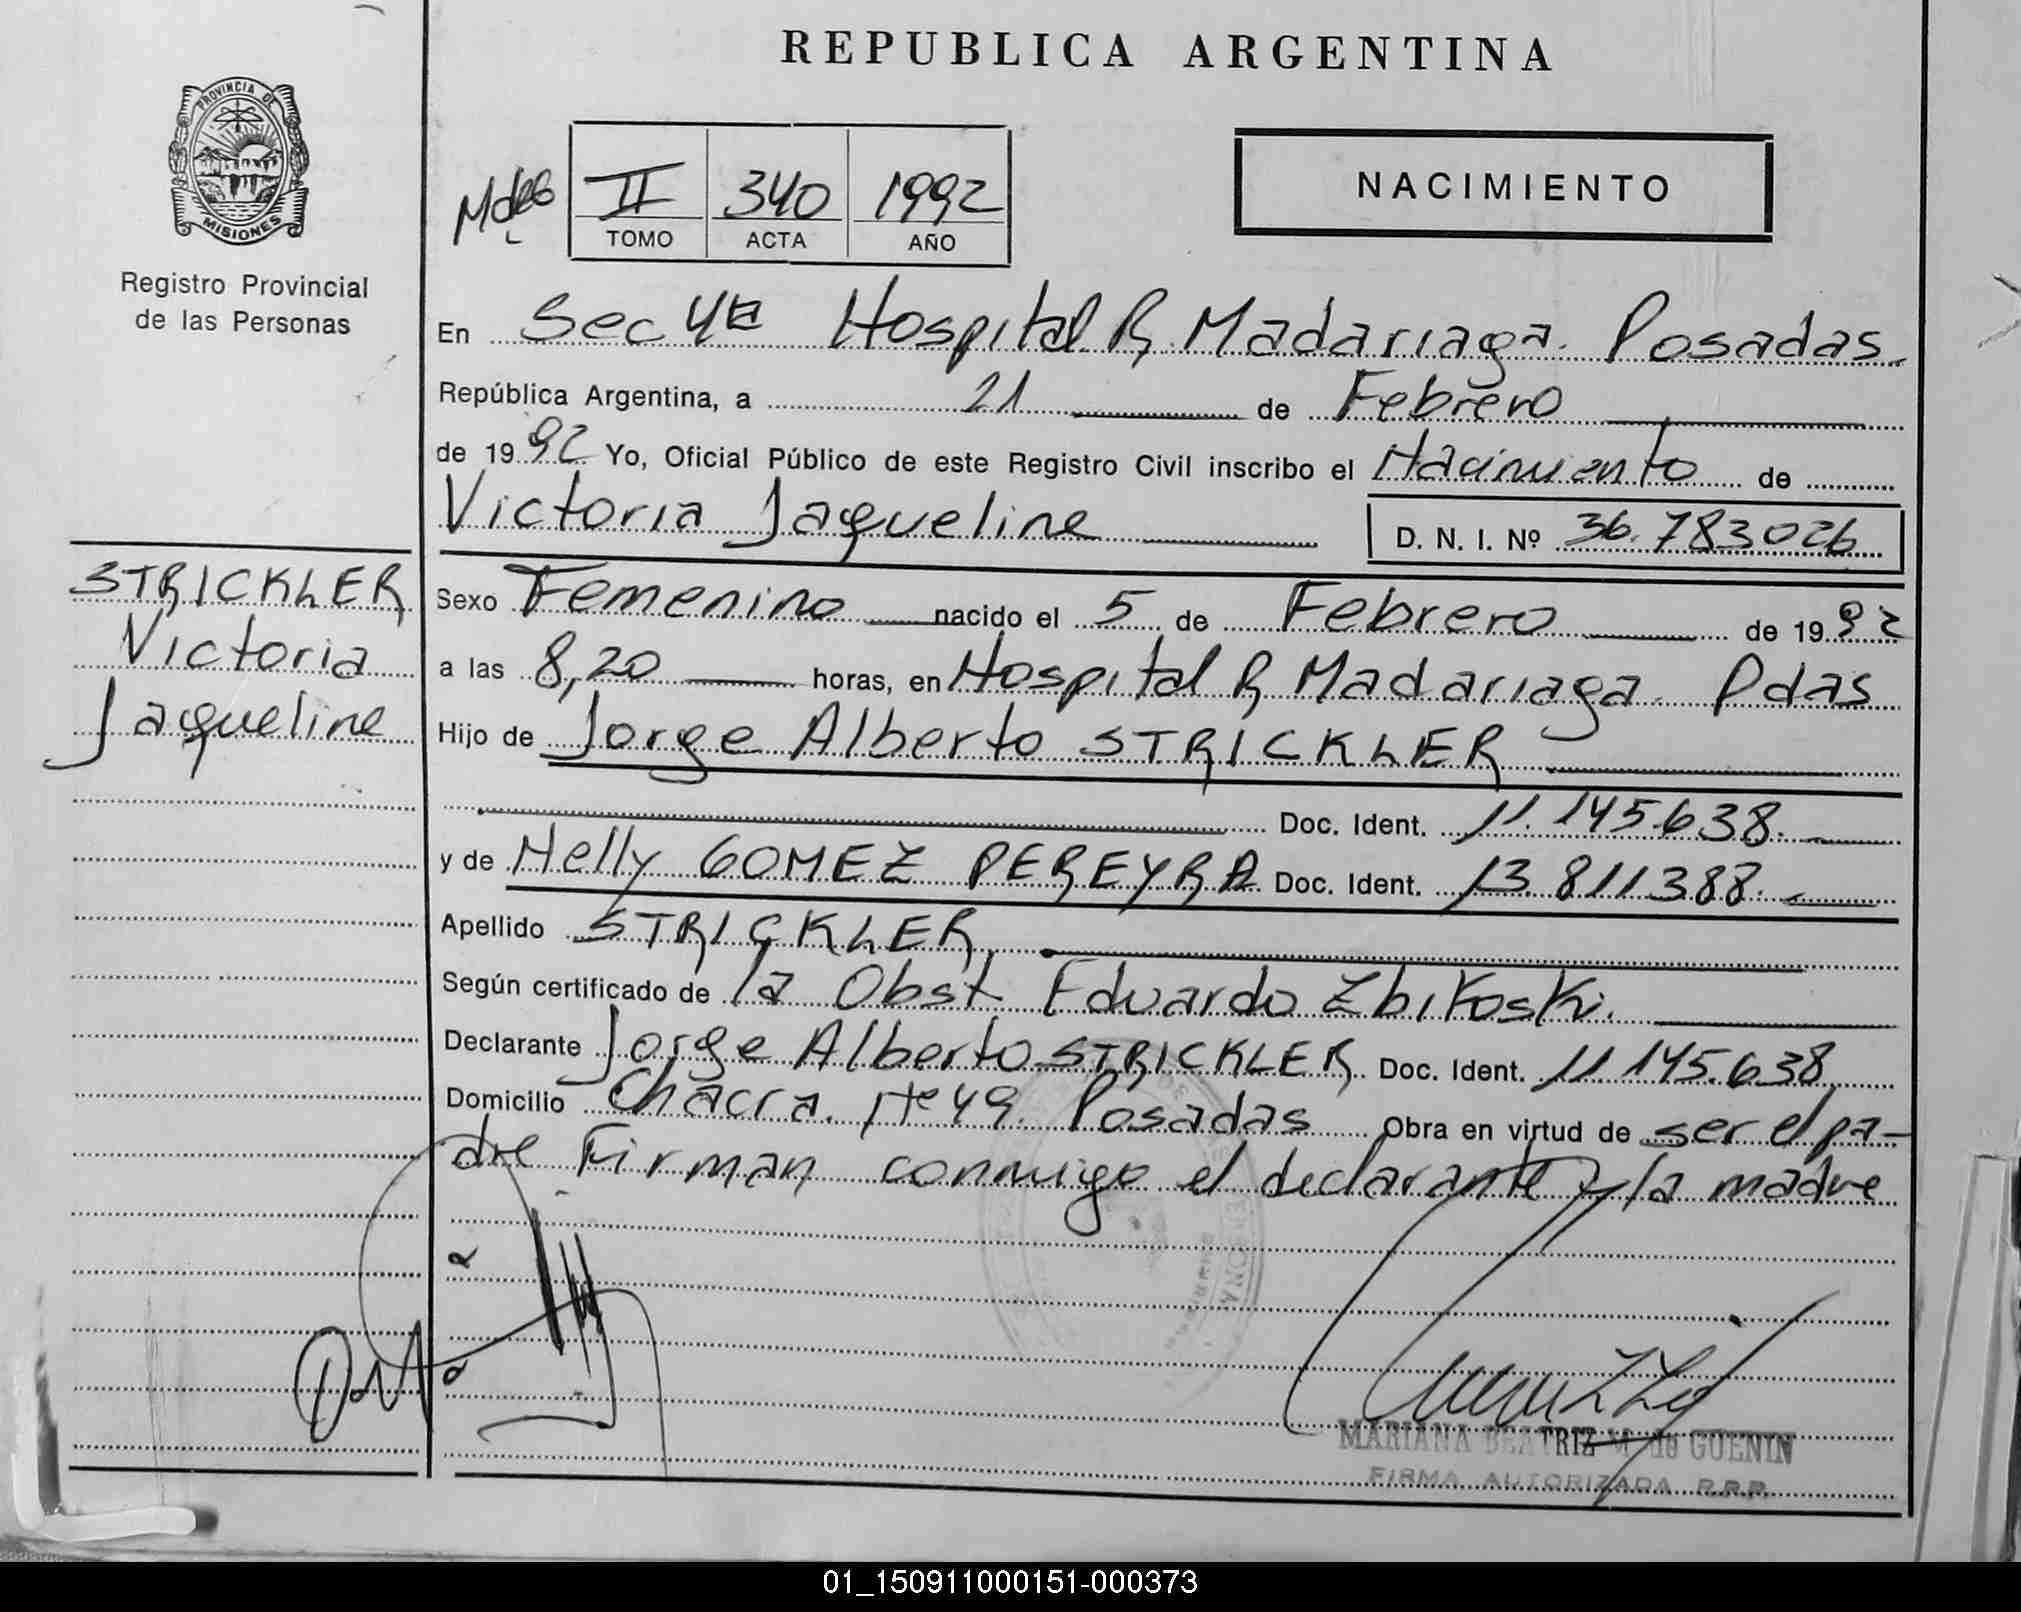 REPUBLICA ARGENTINA
PROVINCIA DE
MISIONES
Registro Provincial
de las Personas
II 340 1992
TOMO ACTA AÑO
NACIMIENTO
En Sec 4ta Hospital R. Madariaga. Posadas.
República Argentina, a 21 de Febrero
de 1992 Yo, Oficial Público de este Registro Civil inscribo el Nacimiento de
Victoria Jaqueline D. N. I. Nº 36.783026
STRICKLER
Victoria
Jaqueline
Sexo Femenino nacido el 5 de Febrero de 1992
a las 8,20 horas, en Hospital R Madariaga. Pdas
Hijo de Jorge Alberto STRICKLER
Doc. Ident. 11.145.638.
y de Nelly GOMEZ PEREYRA Doc. Ident. 13.811388.
Apellido STRICKLER
Según certificado de la Obst Eduardo Zbikoski.
Declarante Jorge Alberto STRICKLER Doc. Ident. 11.145.638
Domicilio Chacra. Nº 49. Posadas Obra en virtud de ser el pa-
dre Firman conmigo el declarante y la madre
MARIANA BEATRIZ M. de GUENIN
FIRMA AUTORIZADA R.P.P.
01_150911000151-000373